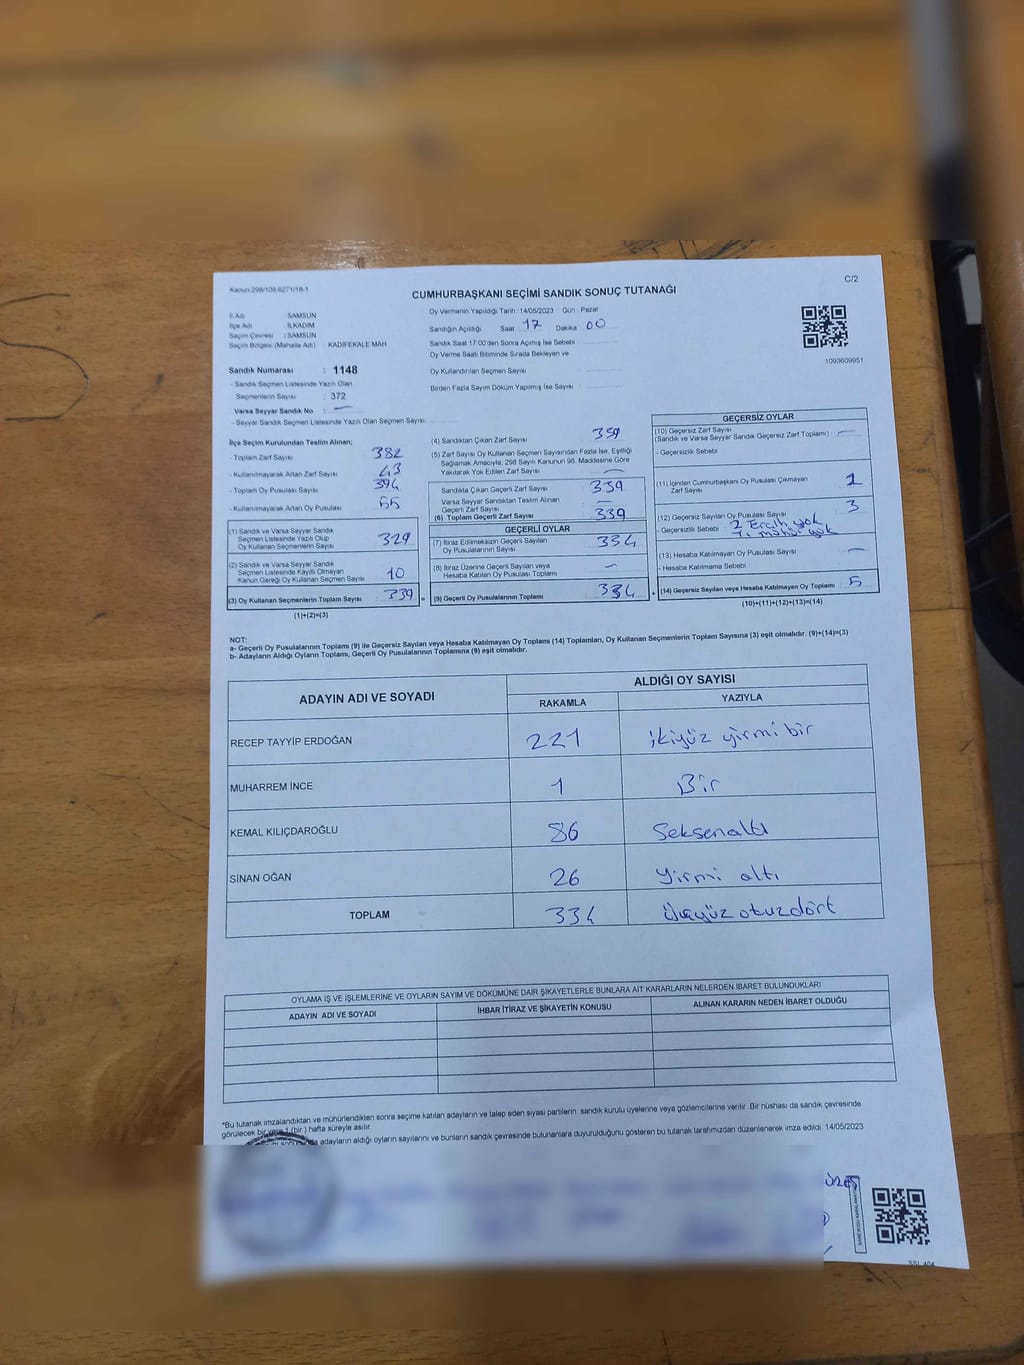 Kanun:298/105,6271/18-1
C/2
CUMHURBAŞKANI SEÇİMİ SANDIK SONUÇ TUTANAĞI
İl Adı : SAMSUN
İlçe Adı : İLKADIM
Seçim Çevresi : SAMSUN
Seçim Bölgesi (Mahalle Adı) : KADİFEKALE MAH.
Sandık Numarası : 1148
- Sandık Seçmen Listesinde Yazılı Olan
Seçmenlerin Sayısı : 372
Varsa Seyyar Sandık No : —
- Seyyar Sandık Seçmen Listesinde Yazılı Olan Seçmen Sayısı :
Oy Vermenin Yapıldığı Tarih :14/05/2023 Gün : Pazar
Sandığın Açıldığı Saat : 17 Dakika : 00
Sandık Saat 17:00'den Sonra Açılmış İse Sebebi
Oy Verme Saati Bitiminde Sırada Bekleyen ve
Oy Kullandırılan Seçmen Sayısı
Birden Fazla Sayım Döküm Yapılmış İse Sayısı
1093609951
İlçe Seçim Kurulundan Teslim Alınan;
- Toplam Zarf Sayısı : 382
- Kullanılmayarak Artan Zarf Sayısı : 43
- Toplam Oy Pusulası Sayısı : 394
- Kullanılmayarak Artan Oy Pusulası : 55
(1) Sandık ve Varsa Seyyar Sandık
Seçmen Listesinde Yazılı Olup
Oy Kullanan Seçmenlerin Sayısı : 329
(2) Sandık ve Varsa Seyyar Sandık
Seçmen Listesinde Kayıtlı Olmayan
Kanun Gereği Oy Kullanan Seçmen Sayısı : 10
(3) Oy Kullanan Seçmenlerin Toplam Sayısı : 339
(1)+(2)=(3)
(4) Sandıktan Çıkan Zarf Sayısı : 339
(5) Zarf Sayısı Oy Kullanan Seçmen Sayısından Fazla İse, Eşitliği
Sağlamak Amacıyla, 298 Sayılı Kanunun 98. Maddesine Göre
Yakılarak Yok Edilen Zarf Sayısı : —
Sandıkta Çıkan Geçerli Zarf Sayısı : 339
Varsa Seyyar Sandıktan Teslim Alınan
Geçerli Zarf Sayısı : —
(6) Toplam Geçerli Zarf Sayısı : 339
GEÇERLİ OYLAR
(7) İtiraz Edilmeksizin Geçerli Sayılan
Oy Pusulalarının Sayısı : 334
(8) İtiraz Üzerine Geçerli Sayılan veya
Hesaba Katılan Oy Pusulası Toplamı : —
(9) Geçerli Oy Pusulalarının Toplamı : 334
GEÇERSİZ OYLAR
(10) Geçersiz Zarf Sayısı
(Sandık ve Varsa Seyyar Sandık Geçersiz Zarf Toplamı) : —
- Geçersizlik Sebebi
(11) İçinden Cumhurbaşkanı Oy Pusulası Çıkmayan
Zarf Sayısı : 1
(12) Geçersiz Sayılan Oy Pusulası Sayısı : 3
- Geçersizlik Sebebi : 2 Ercih yok
1. mühür yok
(13) Hesaba Katılmayan Oy Pusulası Sayısı : —
- Hesaba Katılmama Sebebi
(14) Geçersiz Sayılan veya Hesaba Katılmayan Oy Toplamı : 5
(10)+(11)+(12)+(13)=(14)
NOT:
a- Geçerli Oy Pusulalarının Toplamı (9) ile Geçersiz Sayılan veya Hesaba Katılmayan Oy Toplamı (14) Toplamları, Oy Kullanan Seçmenlerin Toplam Sayısına (3) eşit olmalıdır. (9)+(14)=(3)
b- Adayların Aldığı Oyların Toplamı, Geçerli Oy Pusulalarının Toplamına (9) eşit olmalıdır.
ADAYIN ADI VE SOYADI ALDIĞI OY SAYISI
RAKAMLA YAZIYLA
RECEP TAYYİP ERDOĞAN 221 ikiyüz yirmi bir
MUHARREM İNCE 1 Bir
KEMAL KILIÇDAROĞLU 86 Seksenaltı
SİNAN OĞAN 26 Yirmi altı
TOPLAM 334 üçyüz otuzdört
OYLAMA İŞ VE İŞLEMLERİNE VE OYLARIN SAYIM VE DÖKÜMÜNE DAİR ŞİKAYETLERLE BUNLARA AİT KARARLARIN NELERDEN İBARET BULUNDUKLARI
ADAYIN ADI VE SOYADI İHBAR İTİRAZ VE ŞİKAYETİN KONUSU ALINAN KARARIN NEDEN İBARET OLDUĞU
*Bu tutanak imzalandıktan ve mühürlendikten sonra seçime katılan adayların ve talep eden siyasi partilerin sandık kurulu üyelerine veya gözlemcilerine verilir. Bir nüshası da sandık çevresinde
görülecek bir yere 1 (bir) hafta süreyle asılır.
adayların aldığı oyların sayılarını ve bunların sandık çevresinde bulunanlara duyurulduğunu gösteren bu tutanak tarafımızdan düzenlenerek imza edildi. 14/05/2023